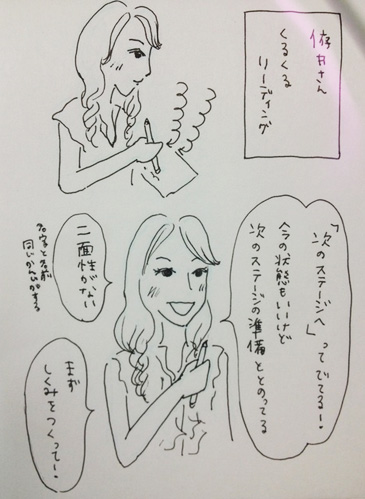 依井さん
くるくる
リーディング
「次のステージへ」
ってでてるー！
今の状態もいいけど
次のステージの準備ととのってる
二面性がない
名字と名前
同じかんじがする
まず
しくみをつくってー！